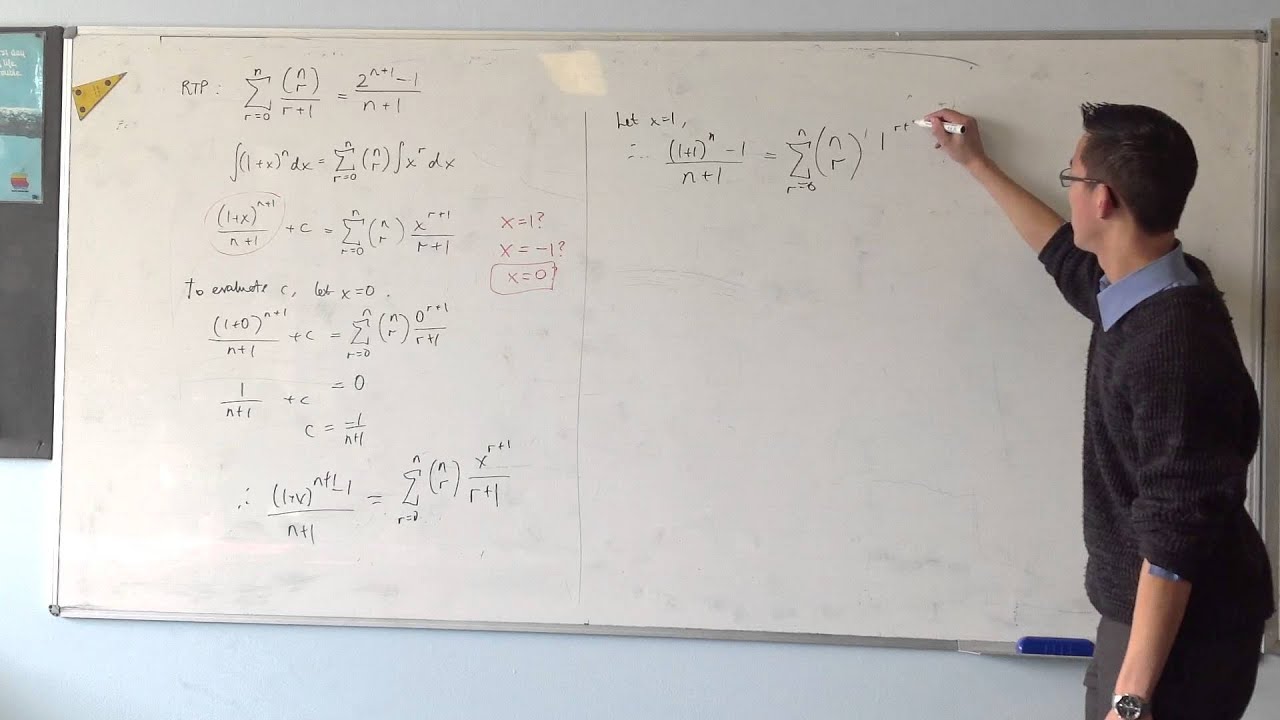 RTP : \sum_{r=0}^{n} \frac{\binom{n}{r}}{r+1} = \frac{2^{n+1}-1}{n+1}
\int (1+x)^n dx = \sum_{r=0}^{n} \binom{n}{r} \int x^r dx
\frac{(1+x)^{n+1}}{n+1} + c = \sum_{r=0}^{n} \binom{n}{r} \frac{x^{r+1}}{r+1}
x=1?
x=-1?
x=0?
To evaluate c, let x=0.
\frac{(1+0)^{n+1}}{n+1} + c = \sum_{r=0}^{n} \binom{n}{r} \frac{0^{r+1}}{r+1}
\frac{1}{n+1} + c = 0
c = \frac{-1}{n+1}
∴ \frac{(1+x)^{n+1}-1}{n+1} = \sum_{r=0}^{n} \binom{n}{r} \frac{x^{r+1}}{r+1}
Let x=1,
∴ \frac{(1+1)^n-1}{n+1} = \sum_{r=0}^{n} \binom{n}{r} 1^{r+